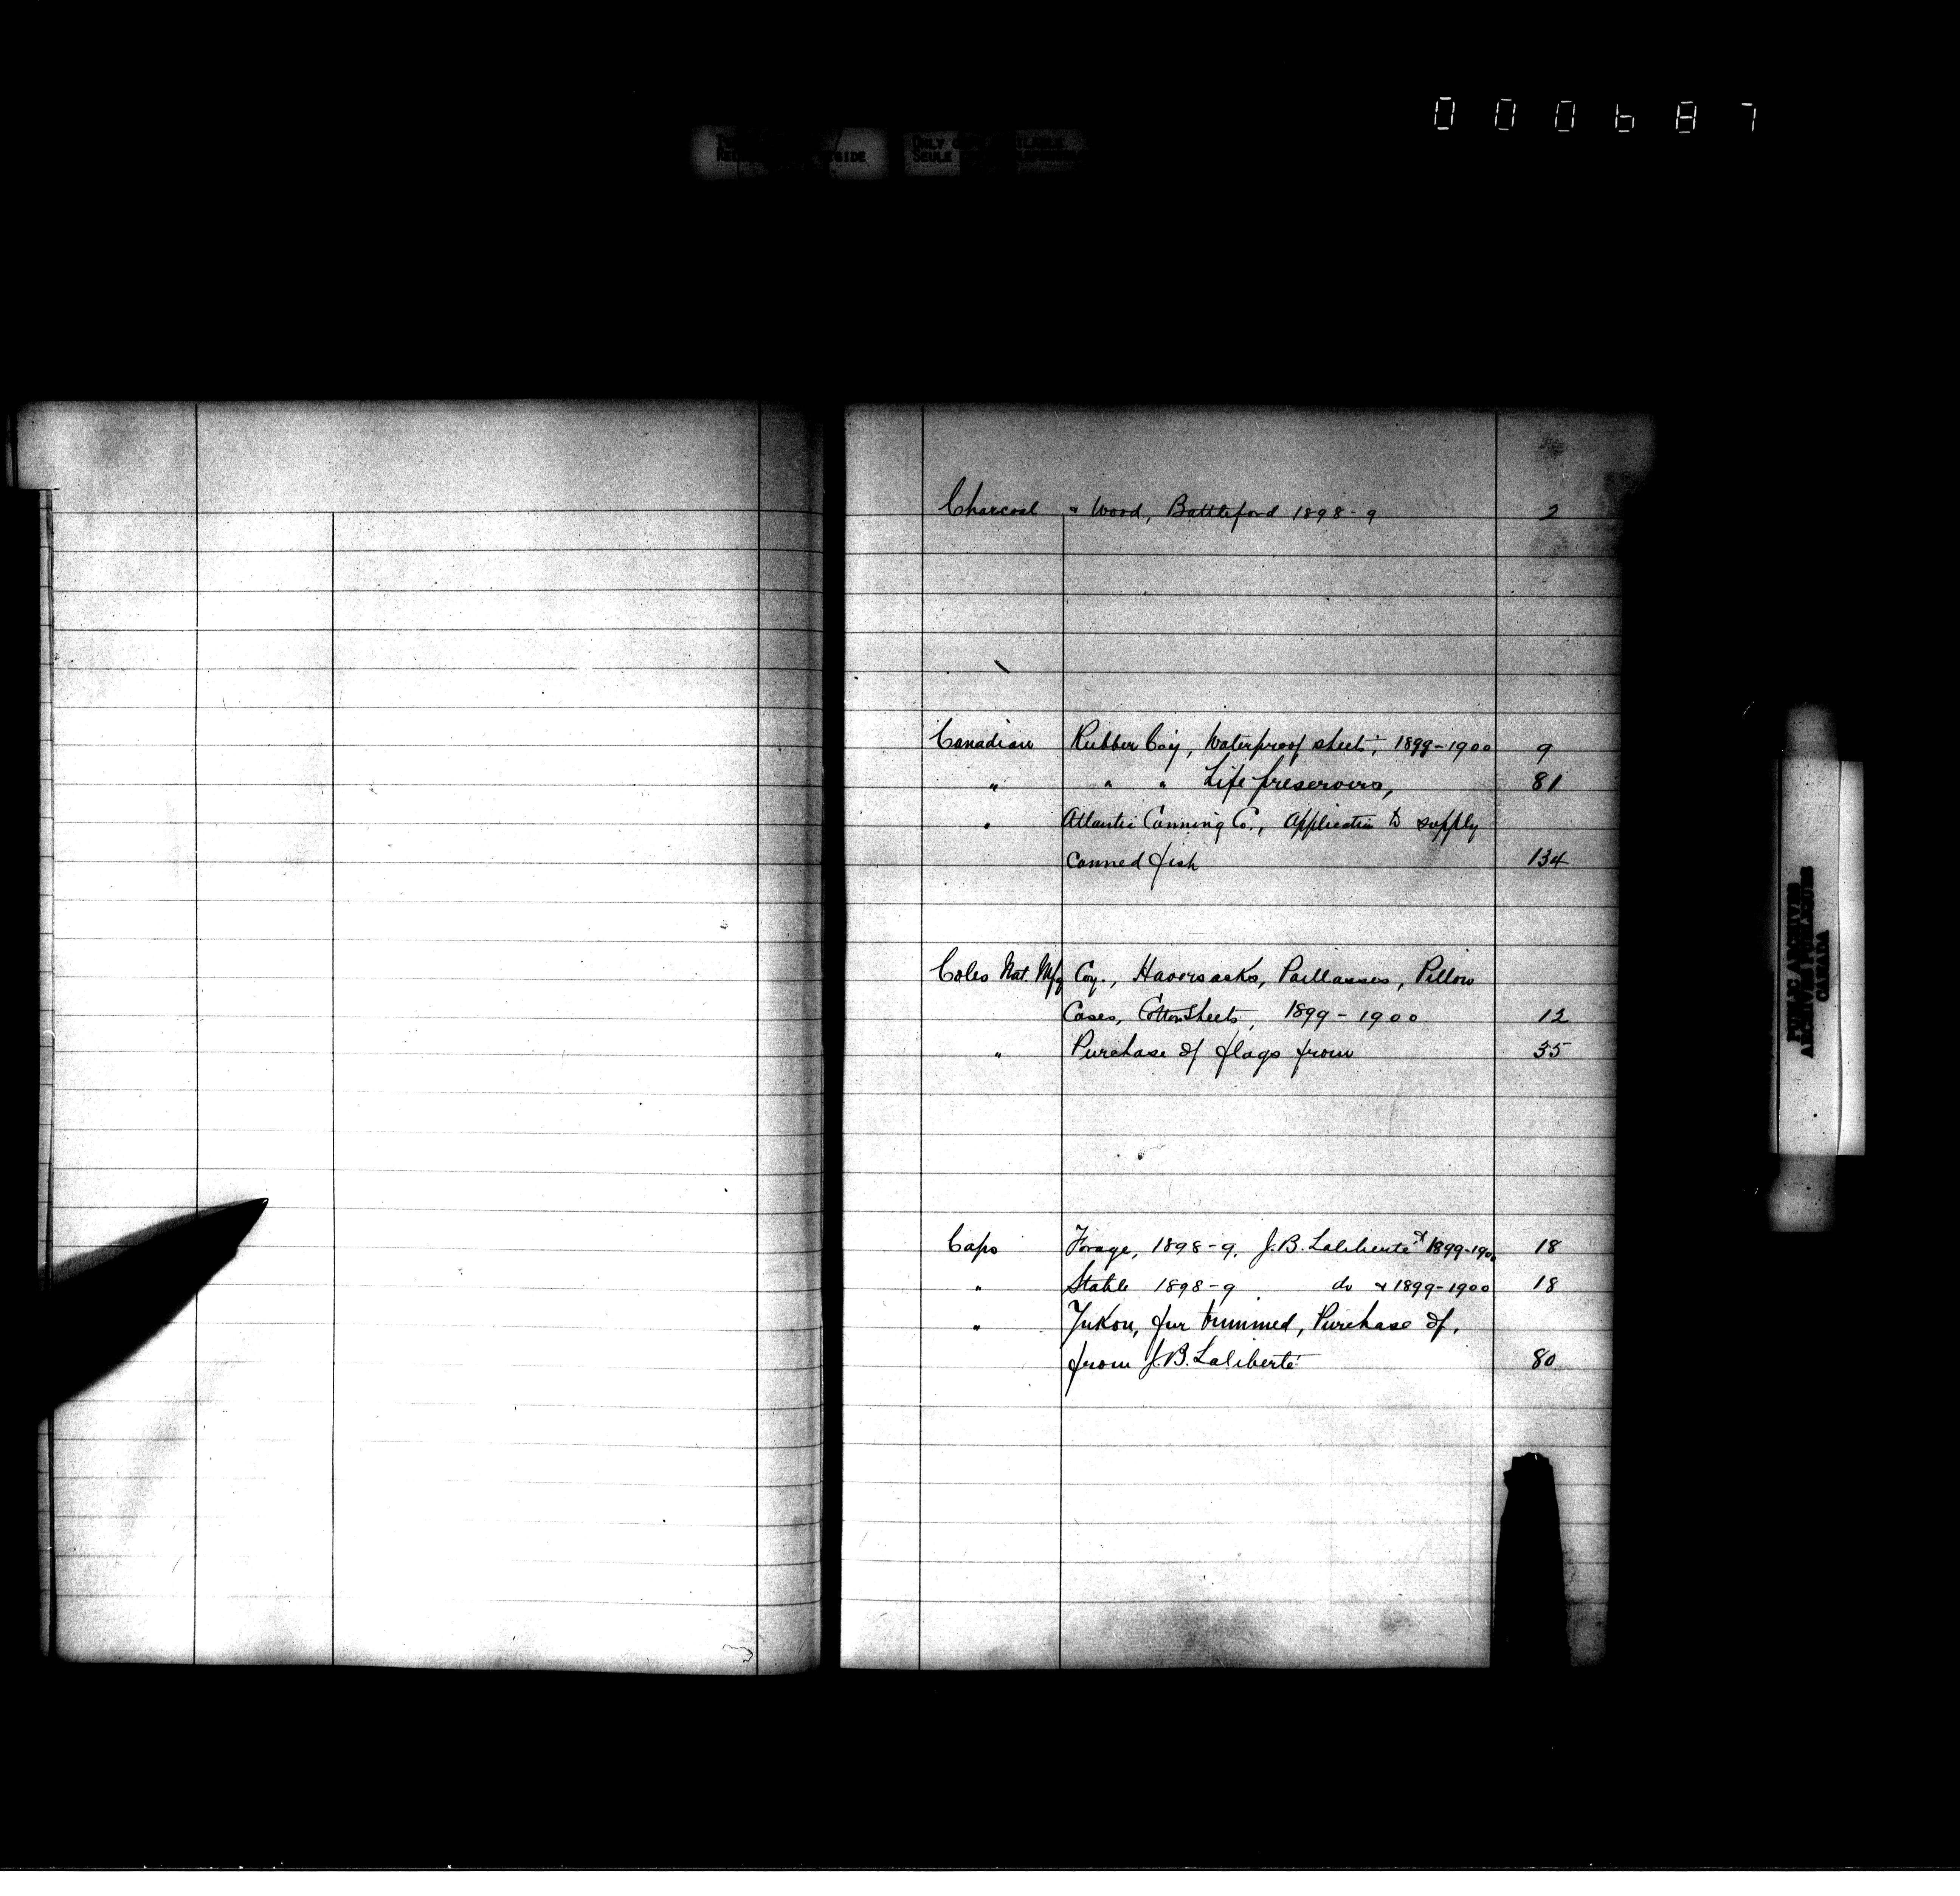 000687
ONLY
SEULE
Charcoal & Wood, Battleford 1898-9 2
Canadian Rubber Coy, Waterproof sheets, 1899-1900 9
" " " Life preservers, 81
" Atlantic Canning Co., Application to supply
canned fish 134
Coles Nat. Mfg Coy., Haversacks, Paillasses, Pillow
Cases, Cotton Sheets, 1899-1900 12
" Purchase of flags from 35
Caps Forage, 1898-9, J.B. Laliberté & 1899-1900 18
" Stable 1898-9 do & 1899-1900 18
" Yukon, fur trimmed, Purchase of,
from J.B. Laliberté 80
PUBLIC ARCHIVES
ARCHIVES PUBLIQUES
CANADA